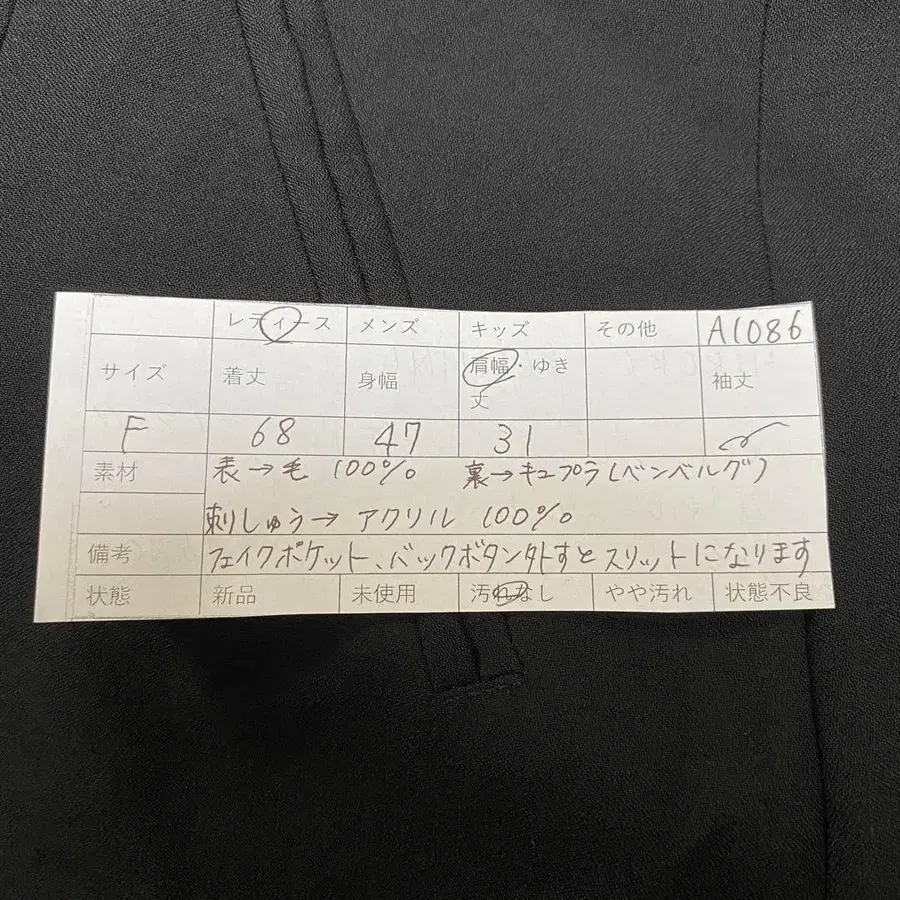 レディース メンズ キッズ その他 A1086
サイズ 着丈 身幅 肩幅・ゆき丈 袖丈
F 68 47 31
素材 表→毛 100% 裏→キュプラ(ベンベルグ)
刺しゅう→アクリル 100%
備考 フェイクポケット、バックボタン外すとスリットになります
状態 新品 未使用 汚れなし やや汚れ 状態不良